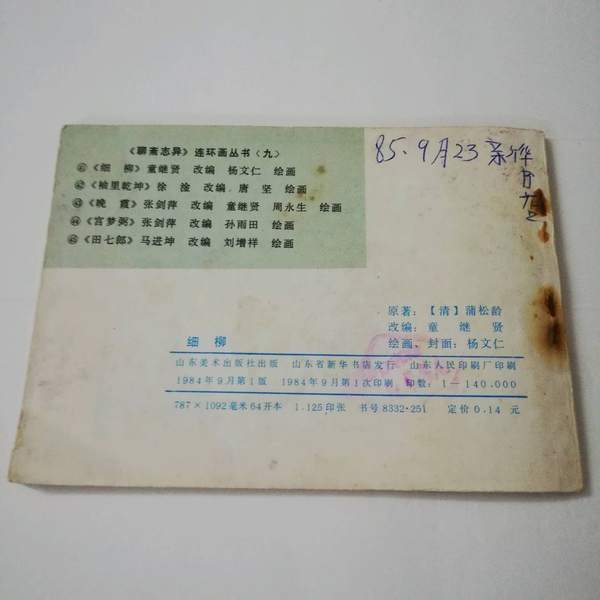 《聊斋志异》连环画丛书〈九〉
㊶《细 柳》童继贤 改编 杨文仁 绘画
㊷《袖里乾坤》徐 淦 改编 唐 坚 绘画
㊸《晚 霞》张剑萍 改编 童继贤 周永生 绘画
㊹《宫梦弼》张剑萍 改编 孙雨田 绘画
㊺《田七郎》马进坤 改编 刘增祥 绘画
85.9月23 新华
原著：【清】蒲松龄
改编：童 继 贤
绘画、封面：杨文仁
细 柳
山东美术出版社出版 山东省新华书店发行 山东人民印刷厂印刷
1984年9月第1版 1984年9月第1次印刷 印数：1—140,000
787×1092毫米64开本 1.125印张 书号8332·251 定价0.14元